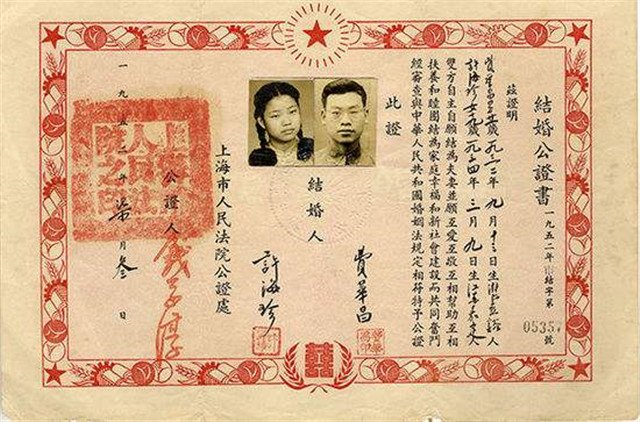 結婚公證書
一九五二年 結字第 0535 號
茲證明
九月十三日生 人
許海珍 女 三月九日生
雙方自主自願結為夫妻並願互愛互敬互相幫助互相
扶養和睦團結為家庭幸福和新社會建設而共同奮鬥
經審查與中華人民共和國婚姻法規定相符特予公證
此證
結婚人
費華昌
許海珍
上海市人民法院公證處
公證人
一九五二年柒月叁日
上海市人民法院之印
囍